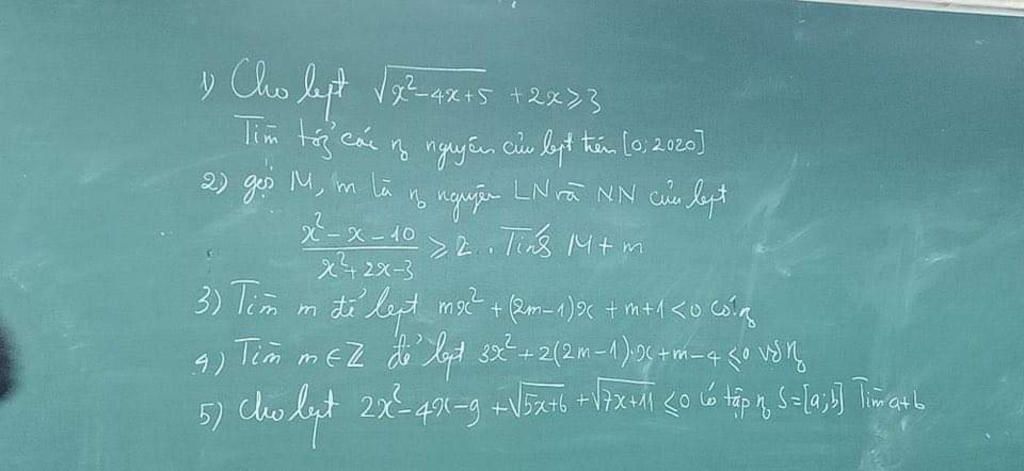 1) Cho bpt √(x²-4x+5) + 2x ≥ 3
Tìm tất cả các n₀ nguyên của bpt trên [0; 2020]
2) gọi M, m là n₀ nguyên LN và NN của bpt
(x²-x-10)/(x²+2x-3) ≥ 2. Tính M+m
3) Tìm m để bpt mx² + (2m-1)x + m+1 < 0 có n₀
4) Tìm m ∈ Z để bpt 3x² + 2(2m-1).x + m-4 ≤ 0 vô n₀
5) Cho bpt 2x²-4x-9 + √(5x+6) + √(7x+11) ≤ 0 có tập n₀ S = [a; b] Tìm a+b